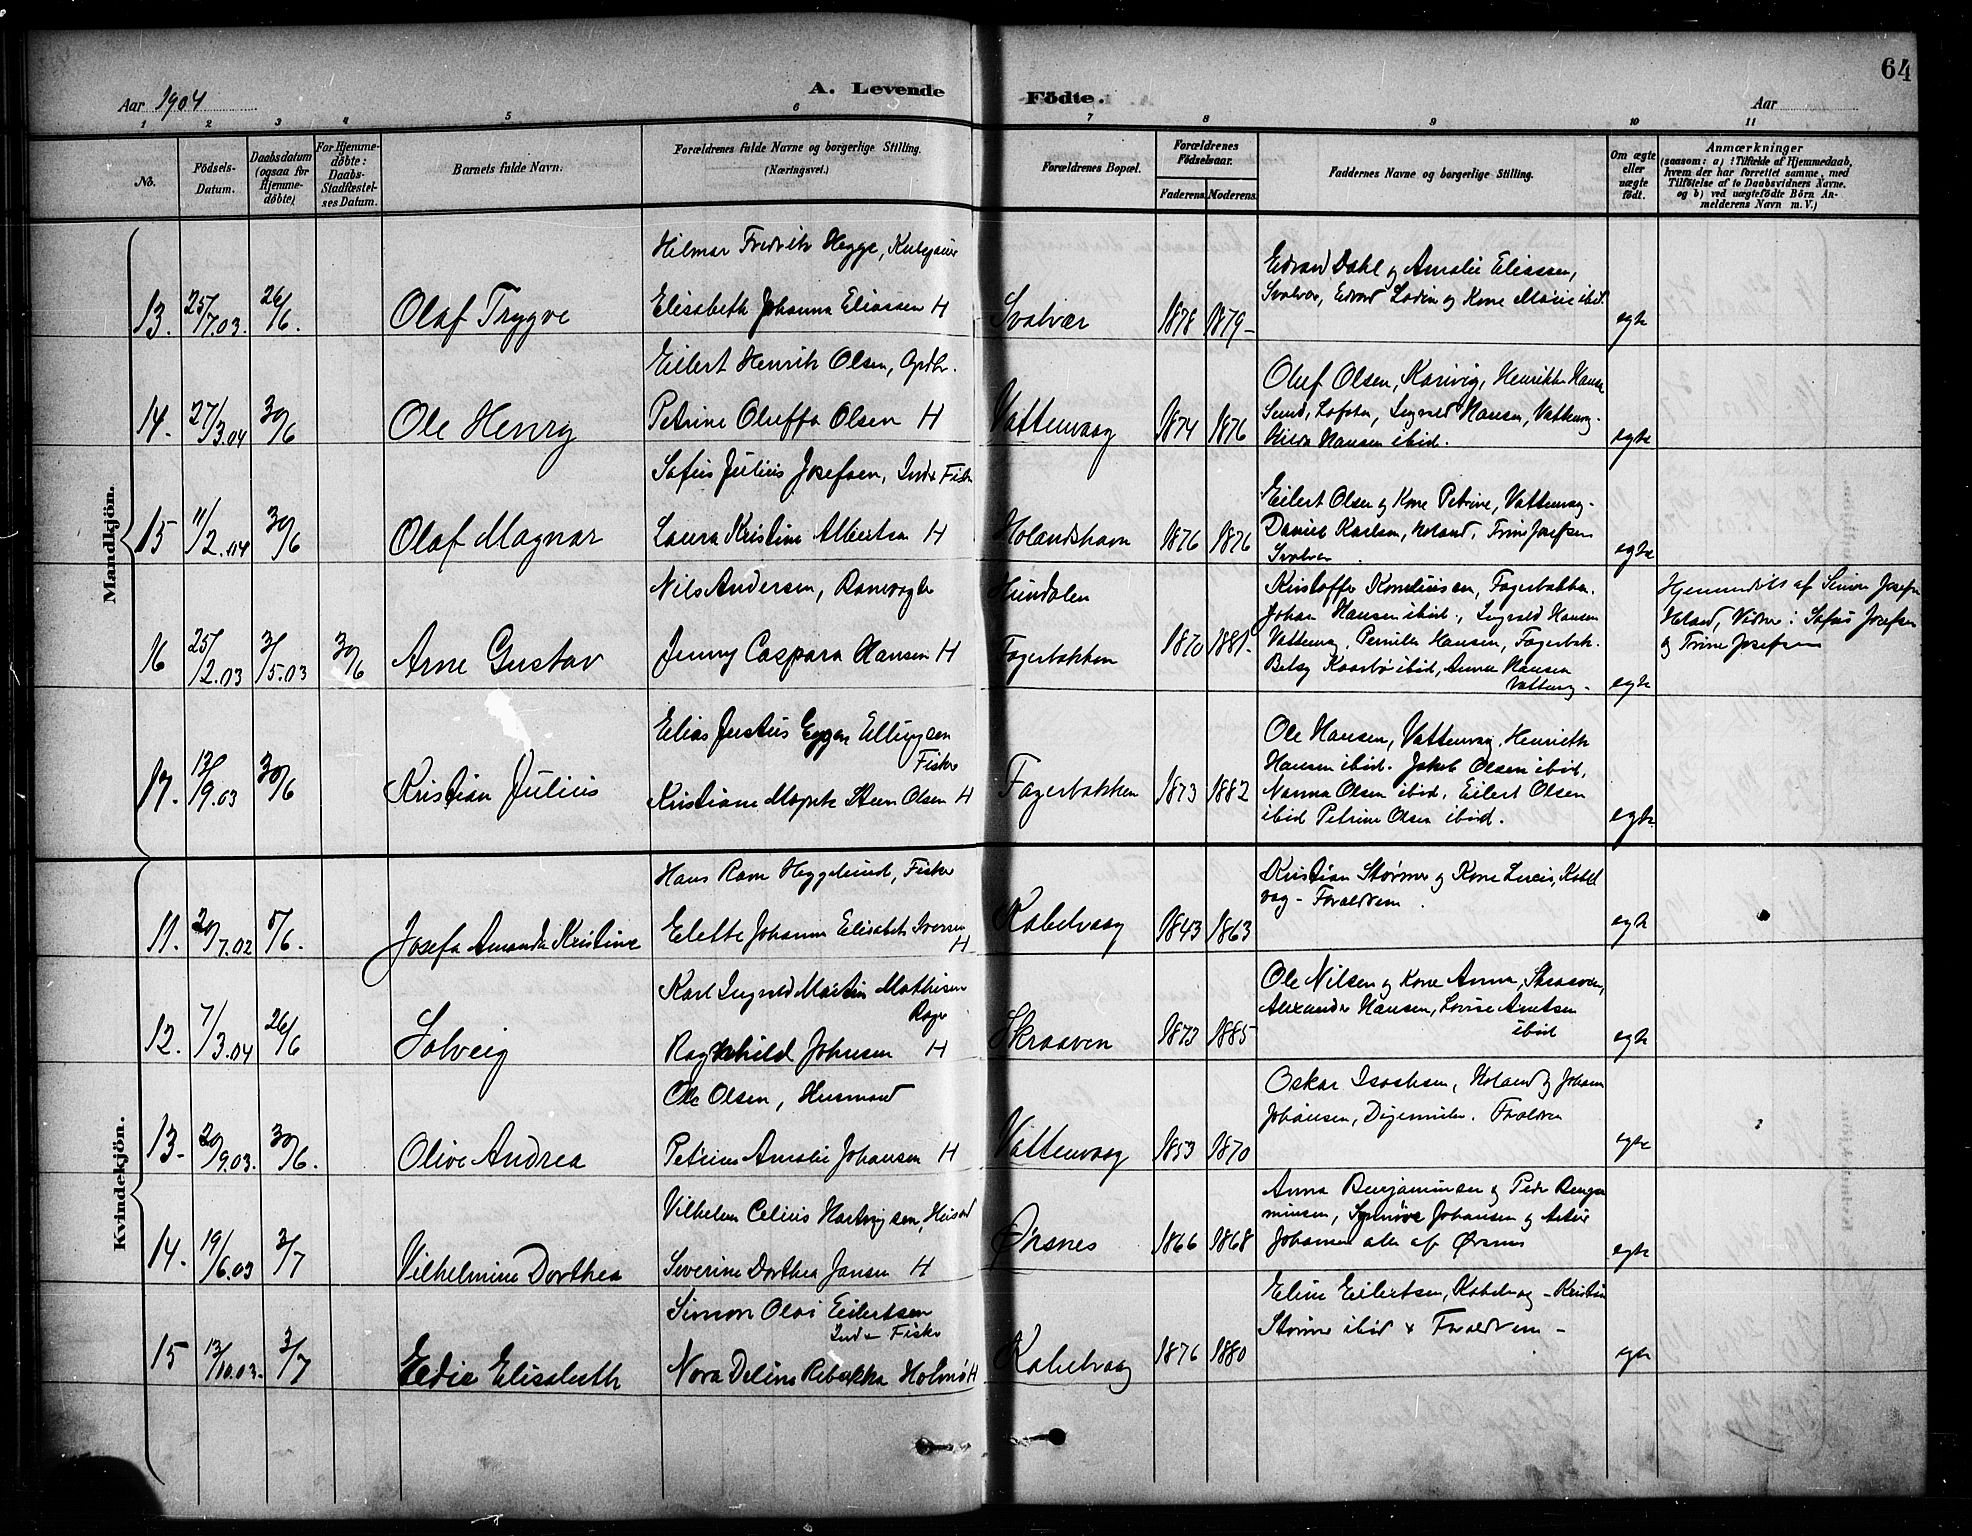 64
Aar 1904
A. Levende
Födte.
Aar
1 2 3 4 5 6 7 8 9 10 11
No.
Födsels-
Datum.
Daabsdatum
(ogsaa for
Hjemme-
döbte)
For Hjemme-
döbte:
Daabs-
Stadfæstel-
ses Datum.
Barnets fulde Navn.
Forældrenes fulde Navne og borgerlige Stilling.
(Næringsvei.)
Forældrenes Bopæl.
Forældrenes
Födselsaar.
Faderens.
Moderens.
Faddernes Navne og borgerlige Stilling.
Om ægte
eller
uægte
födt.
Anmærkninger
(saasom: a) i Tilfælde af Hjemmedaab,
hvem der har forrettet samme, med
Tilföielse af to Daabsvidners Navne,
og b) ved uægtefödte Börn An-
melderens Navn m. V.)
Mandkjön.
13. 25/7.03. 26/6. Olaf Trygve
Hilmar Fredrik Hegge,
Elisabeth Johanna Eliassen H
Svolvær 1878 1879-
Edvard Dahl og Amalie Eliassen,
Svolvær, Edvard Lodin og Kone Marie ibid.
egte
14. 27/3.04 30/6 Ole Henry
Eilert Henrik Olsen, Opdbr.
Petrine Oluffa Olsen H
Vattenvaag 1874 1876
Oluf Olsen, Karivig, Henrikke Hansen
Sund, Lofoten, Ingvald Hansen, Vattenvg.
Hansen ibid.
egte
15 11/2.04 30/6 Olaf Magnar
Sofus Julius Josefsen, Ind & Fisker
Laura Kristine Albertsen H
Holandshavn 1876 1876
Eilert Olsen og Kone Petrine, Vattenvag-
Daniel Karlsen, Holand, Trine Josefsen
Svolvær
egte
16 25/2.03 3/5.03 30/6 Arne Gustav
Nils Andersen,
Jenny Caspara Hansen H
Hundalen
Fagerbakken 1870 1881-
Kristoffer Kornelius­sen, Fagerbakken.
Johan Hansen ibid., Ingvald Hansen
Vattenvg, Pernille Hansen, Fagerbak.
Betsy Kaarbø ibid, Anna Hansen
Vattenvg-
egte
Hjemmedøbt af Simon Josefsen
Holand, Vidner: Sofus Josefsen
og Trine Josefsen
17. 13/9.03 30/6 Kristian Julius
Elias Justus Eggen Ellingsen
Fisker
Kristiane Magrete Steen Olsen H
Fagerbakken 1873 1882
Ole Hansen, Vattenvag, Henrikke
Hansen ibid. Jakob Olsen ibid,
Nanna Olsen ibid, Eilert Olsen
ibid Petrine Olsen ibid.
egte.
Kvindekjön.
11. 20/7.02 5/6. Josefa Amanda Kristine
Hans Ravn Heggelund, Fisker
Elette Johanna Elisabeth Iversen
H
Kabelvaag 1843 1863
Kristian Størmer og Kone Lucie, Kabel
vag - Forældrene
egte
12. 7/3.04 26/6 Solveig
Karl Ingvald Martin Mathisen
Ragnhild Johnsen H
Skraaven 1873 1885
Ole Nilsen og Kone Anna, Skraaven,
Alexander Hansen, Lovise Arntsen
ibid
egte
13- 20/9.03. 30/6. Olive Andrea
Ole Olsen, Husmand
Petrine Amalie Johansen H
Vattenvaag 1853 1870
Oskar Isachsen, Holand og Johan
Johansen, Digermulen. Forældre
egte
14. 19/6.03 3/7 Vilhelmine Dorthea
Vilhelm Celius Hartvigsen,
Severine Dorthea Jansen H
Ørsnes 1866 1868
Anna Benjaminsen og Peder Benja
minsen, Synnøve Johansen og Artur
Johansen alle af Ørsnes
egte
15 13/10.03. 3/7 Eldie Elisabeth
Simon Olai Eilertsen
Ind & Fisker
Nora Deline Rebekka Holmø H
Kabelvaag 1876 1880
Eline Eilertsen, Kabelvag - Kristin
Størmer ibid & Forældrene -
egte